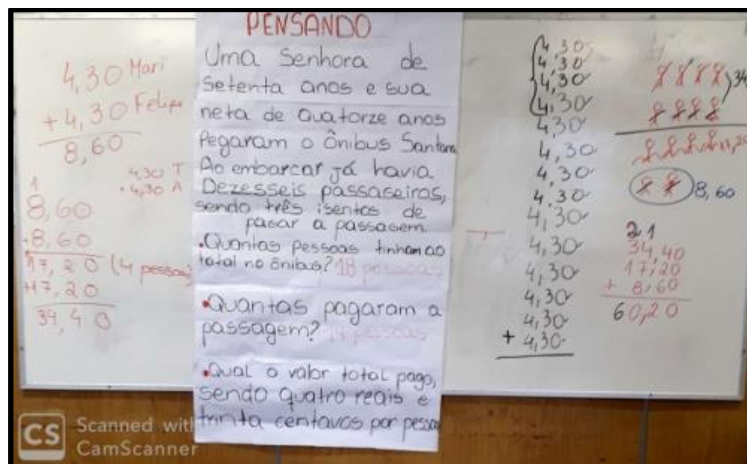 4,30 Mari
+4,30 Felipe
8,60
4,30 T
+4,30 A
1
8,60
+8,60
17,20 (4 pessoas)
+17,20
34,40
PENSANDO
Uma Senhora de
Setenta anos e sua
neta de Quatorze anos
Pegaram o Ônibus
Ao embarcar já havia
Dezesseis passageiros,
sendo três isentos de
pagar a passagem.
•Quantas pessoas tinham ao
total no ônibus? 18 pessoas
•Quantas pagaram a
passagem? 14 pessoas
•Qual o valor total pago,
sendo quatro reais e
trinta centavos por pessoa
4,30
4,30
4,30
4,30
4,30
4,30
4,30
4,30
4,30
4,30
4,30
4,30
4,30
+ 4,30
8,60
21
34,40
17,20
+ 8,60
60,20
CS Scanned with
CamScanner